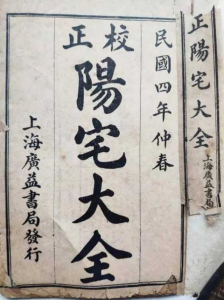 民國四年仲春
校正
陽宅大全
上海廣益書局發行
正陽宅大全
上海廣益書局